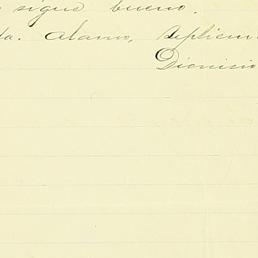 sigue bueno.
da. Alamo, Septiem
Dionisio